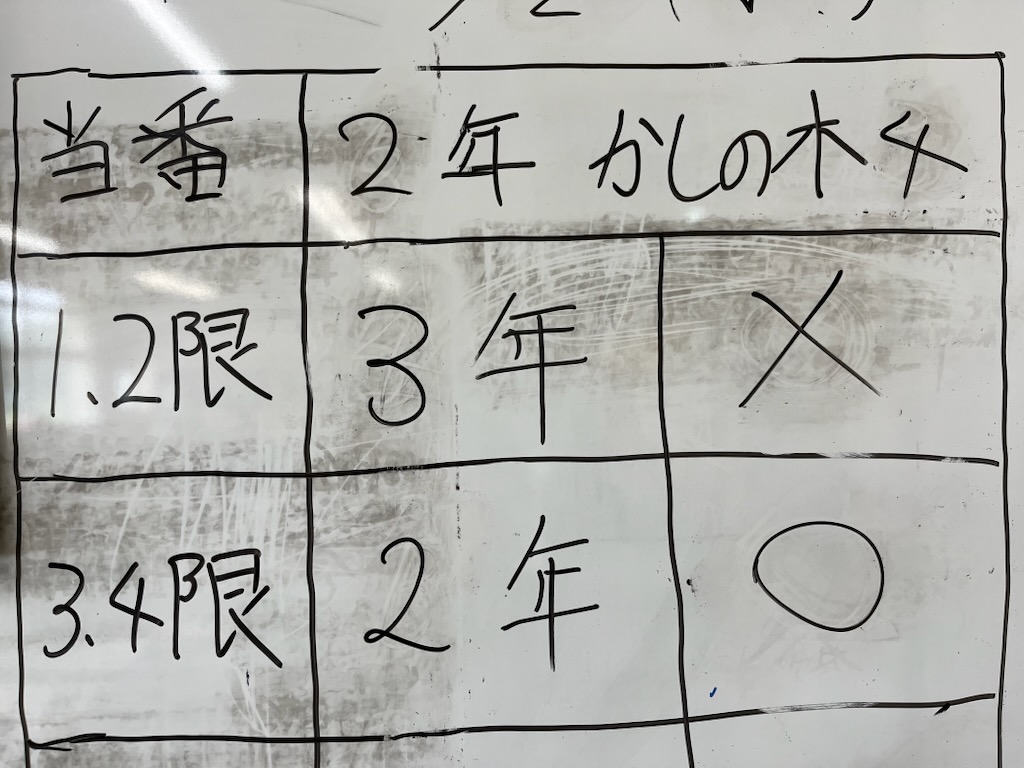 当番 2年 かしの木4
1.2限 3年 ×
3.4限 2年 ○